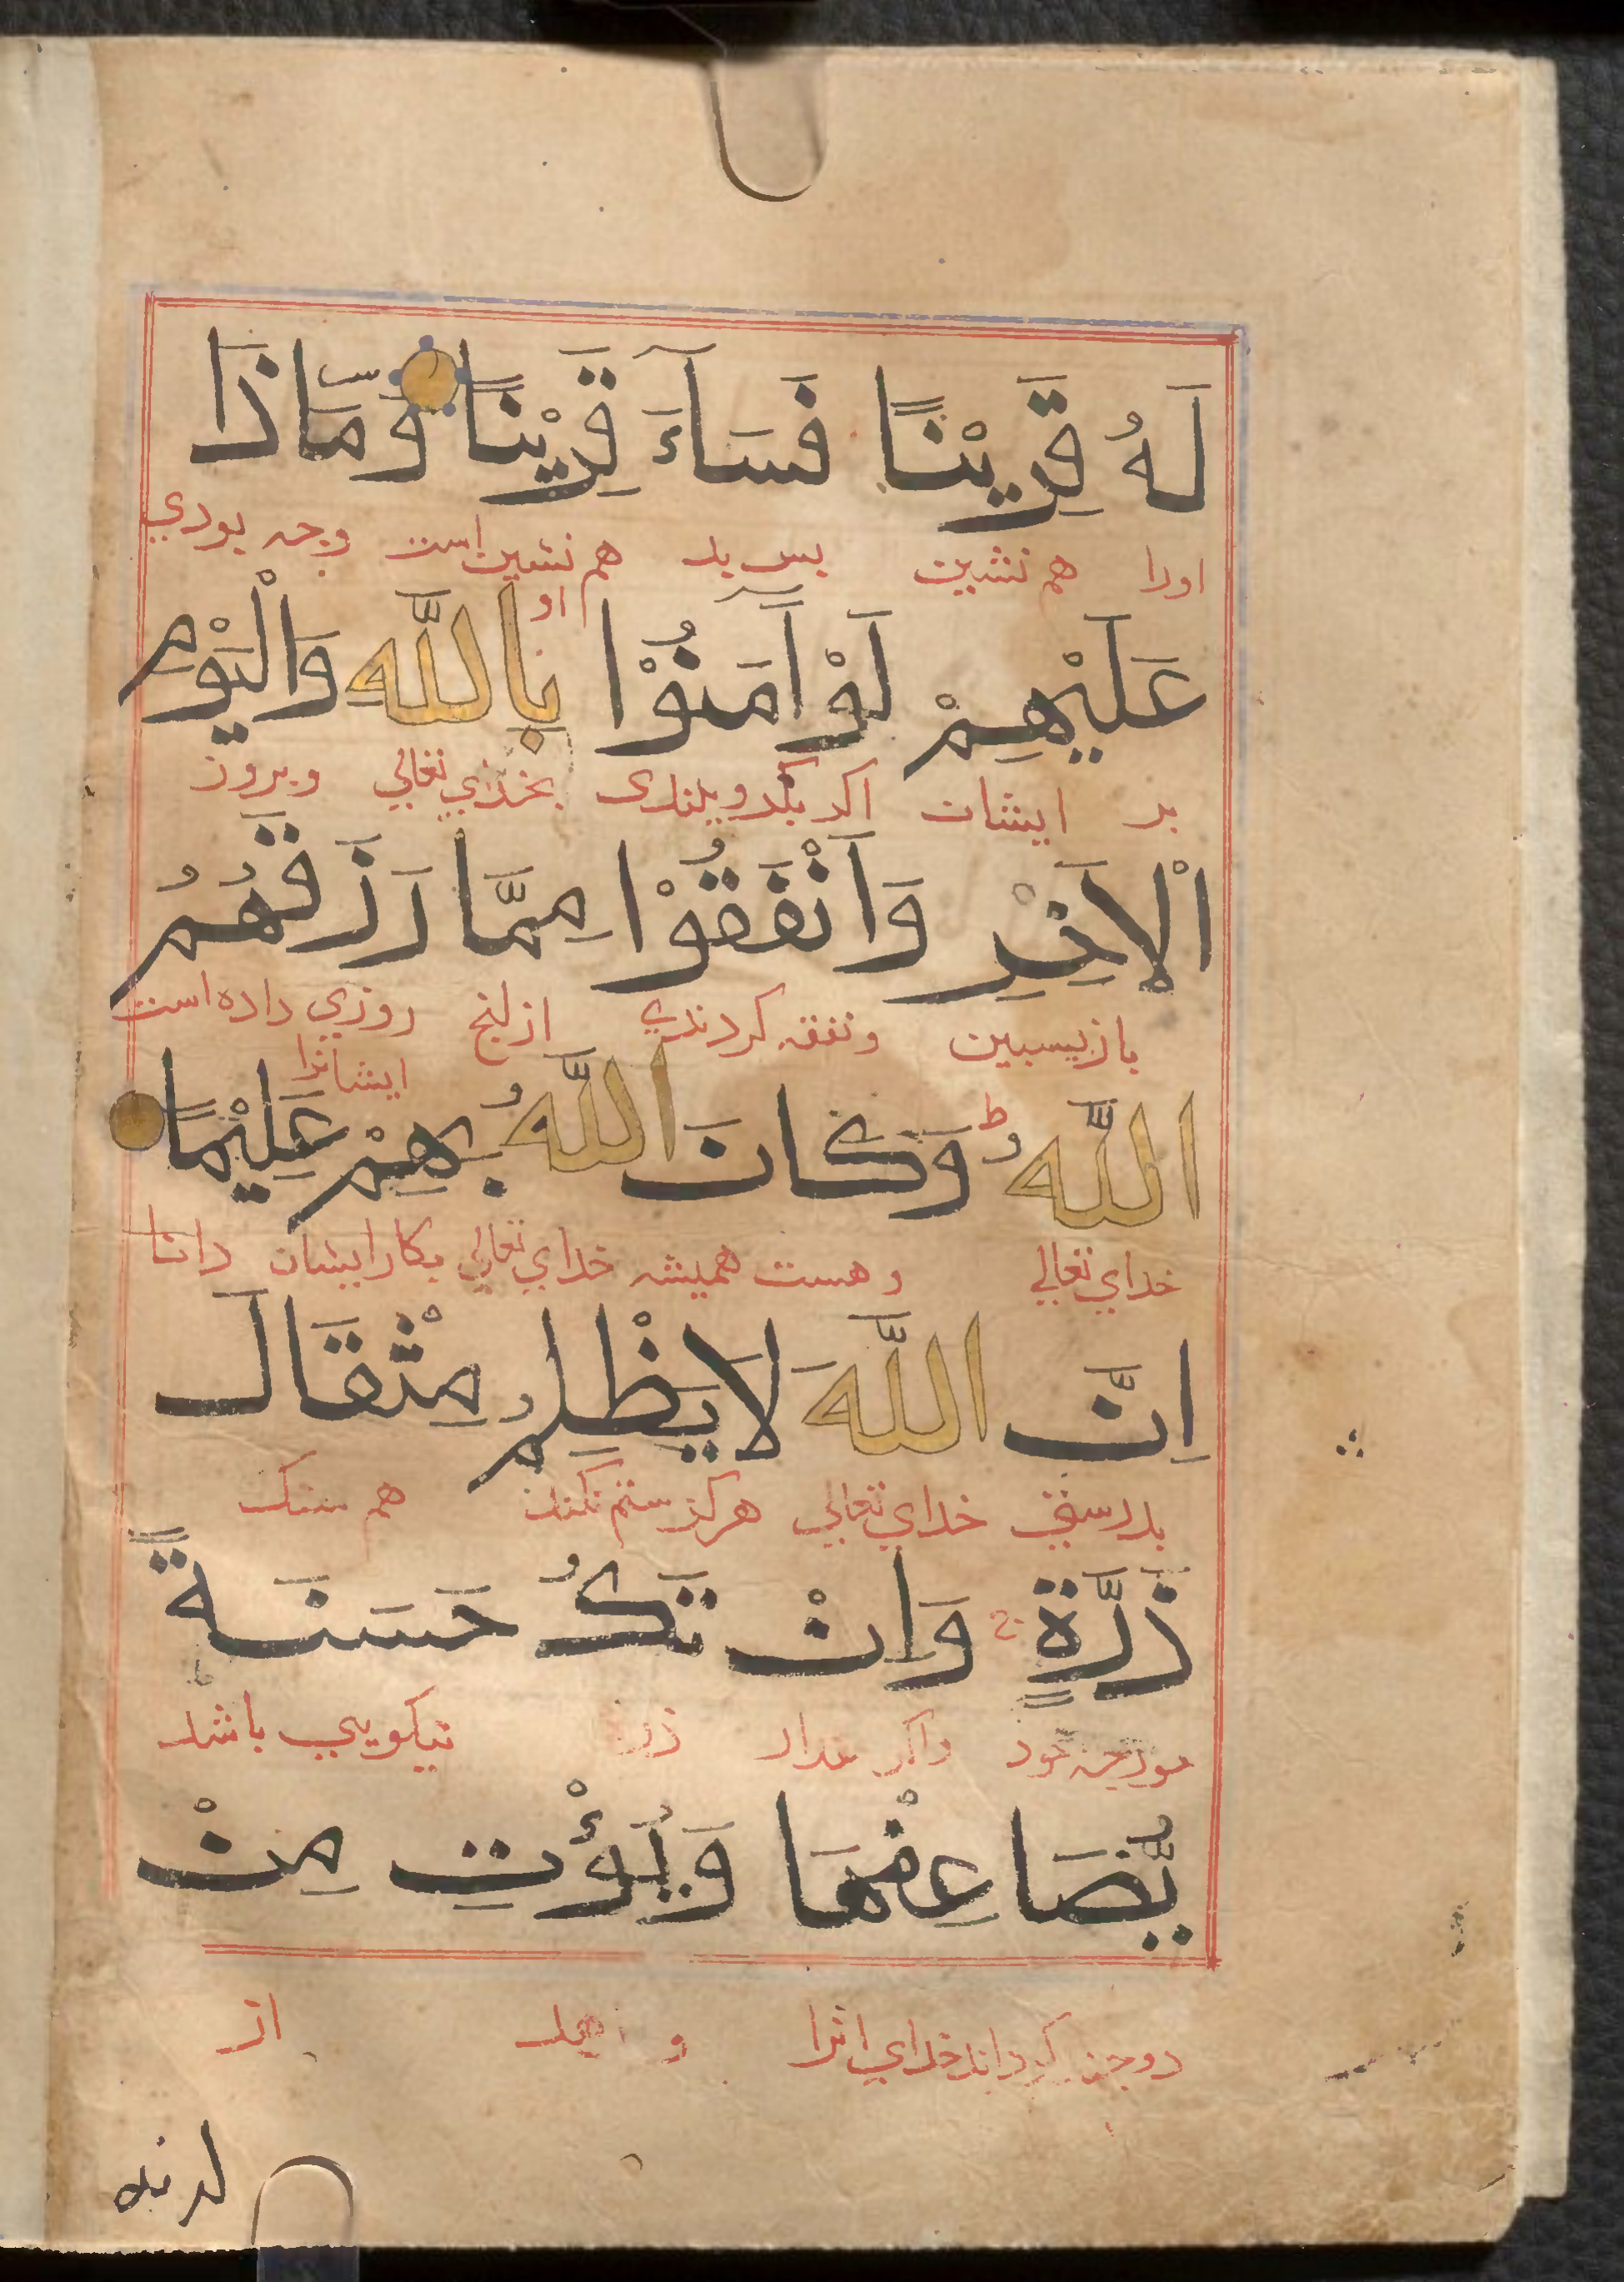 لَهُ قَرِيْنًا فَسَآءَ قَرِيْنًا وَمَاذَا
اورا هم نشین بس بد هم نشین است وچه بودی
او
عَلَيْهِمْ لَوْ اٰمَنُوْا بِاللّٰهِ وَالْيَوْمِ
بر ایشان اکر بکرویدندی بخدای تعالی وبروز
الْاٰخِرِ وَاَنْفَقُوْا مِمَّا رَزَقَهُمُ
بازپسین ونفقه کردندی ازانچ روزی داده است
ایشانرا
اللّٰهُ ط وَكَانَ اللّٰهُ بِهِمْ عَلِيْمًا
خدای تعالی وهست همیشه خدای تعالی بکار ایشان دانا
اِنَّ اللّٰهَ لَا يَظْلِمُ مِثْقَالَ
بدرستی خدای تعالی هرکز ستم نکند هم سنک
ذَرَّةٍ ج وَاِنْ تَكُ حَسَنَةً
مورچه خورد واکر مقدار ذره نیکویی باشد
يُّضَاعِفْهَا وَيُؤْتِ مِنْ
دوچند کرداند خدای انرا و بدهد از
لدنه